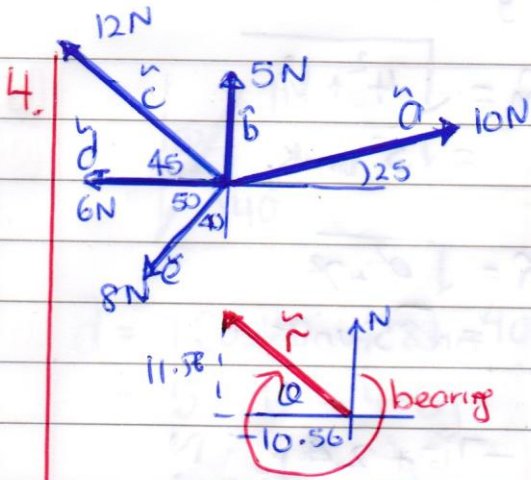 12N
4.
5N
c
b
a
10N
d
45
25
6N
50
40
e
8N
r
N
11.56
θ
bearing
-10.56